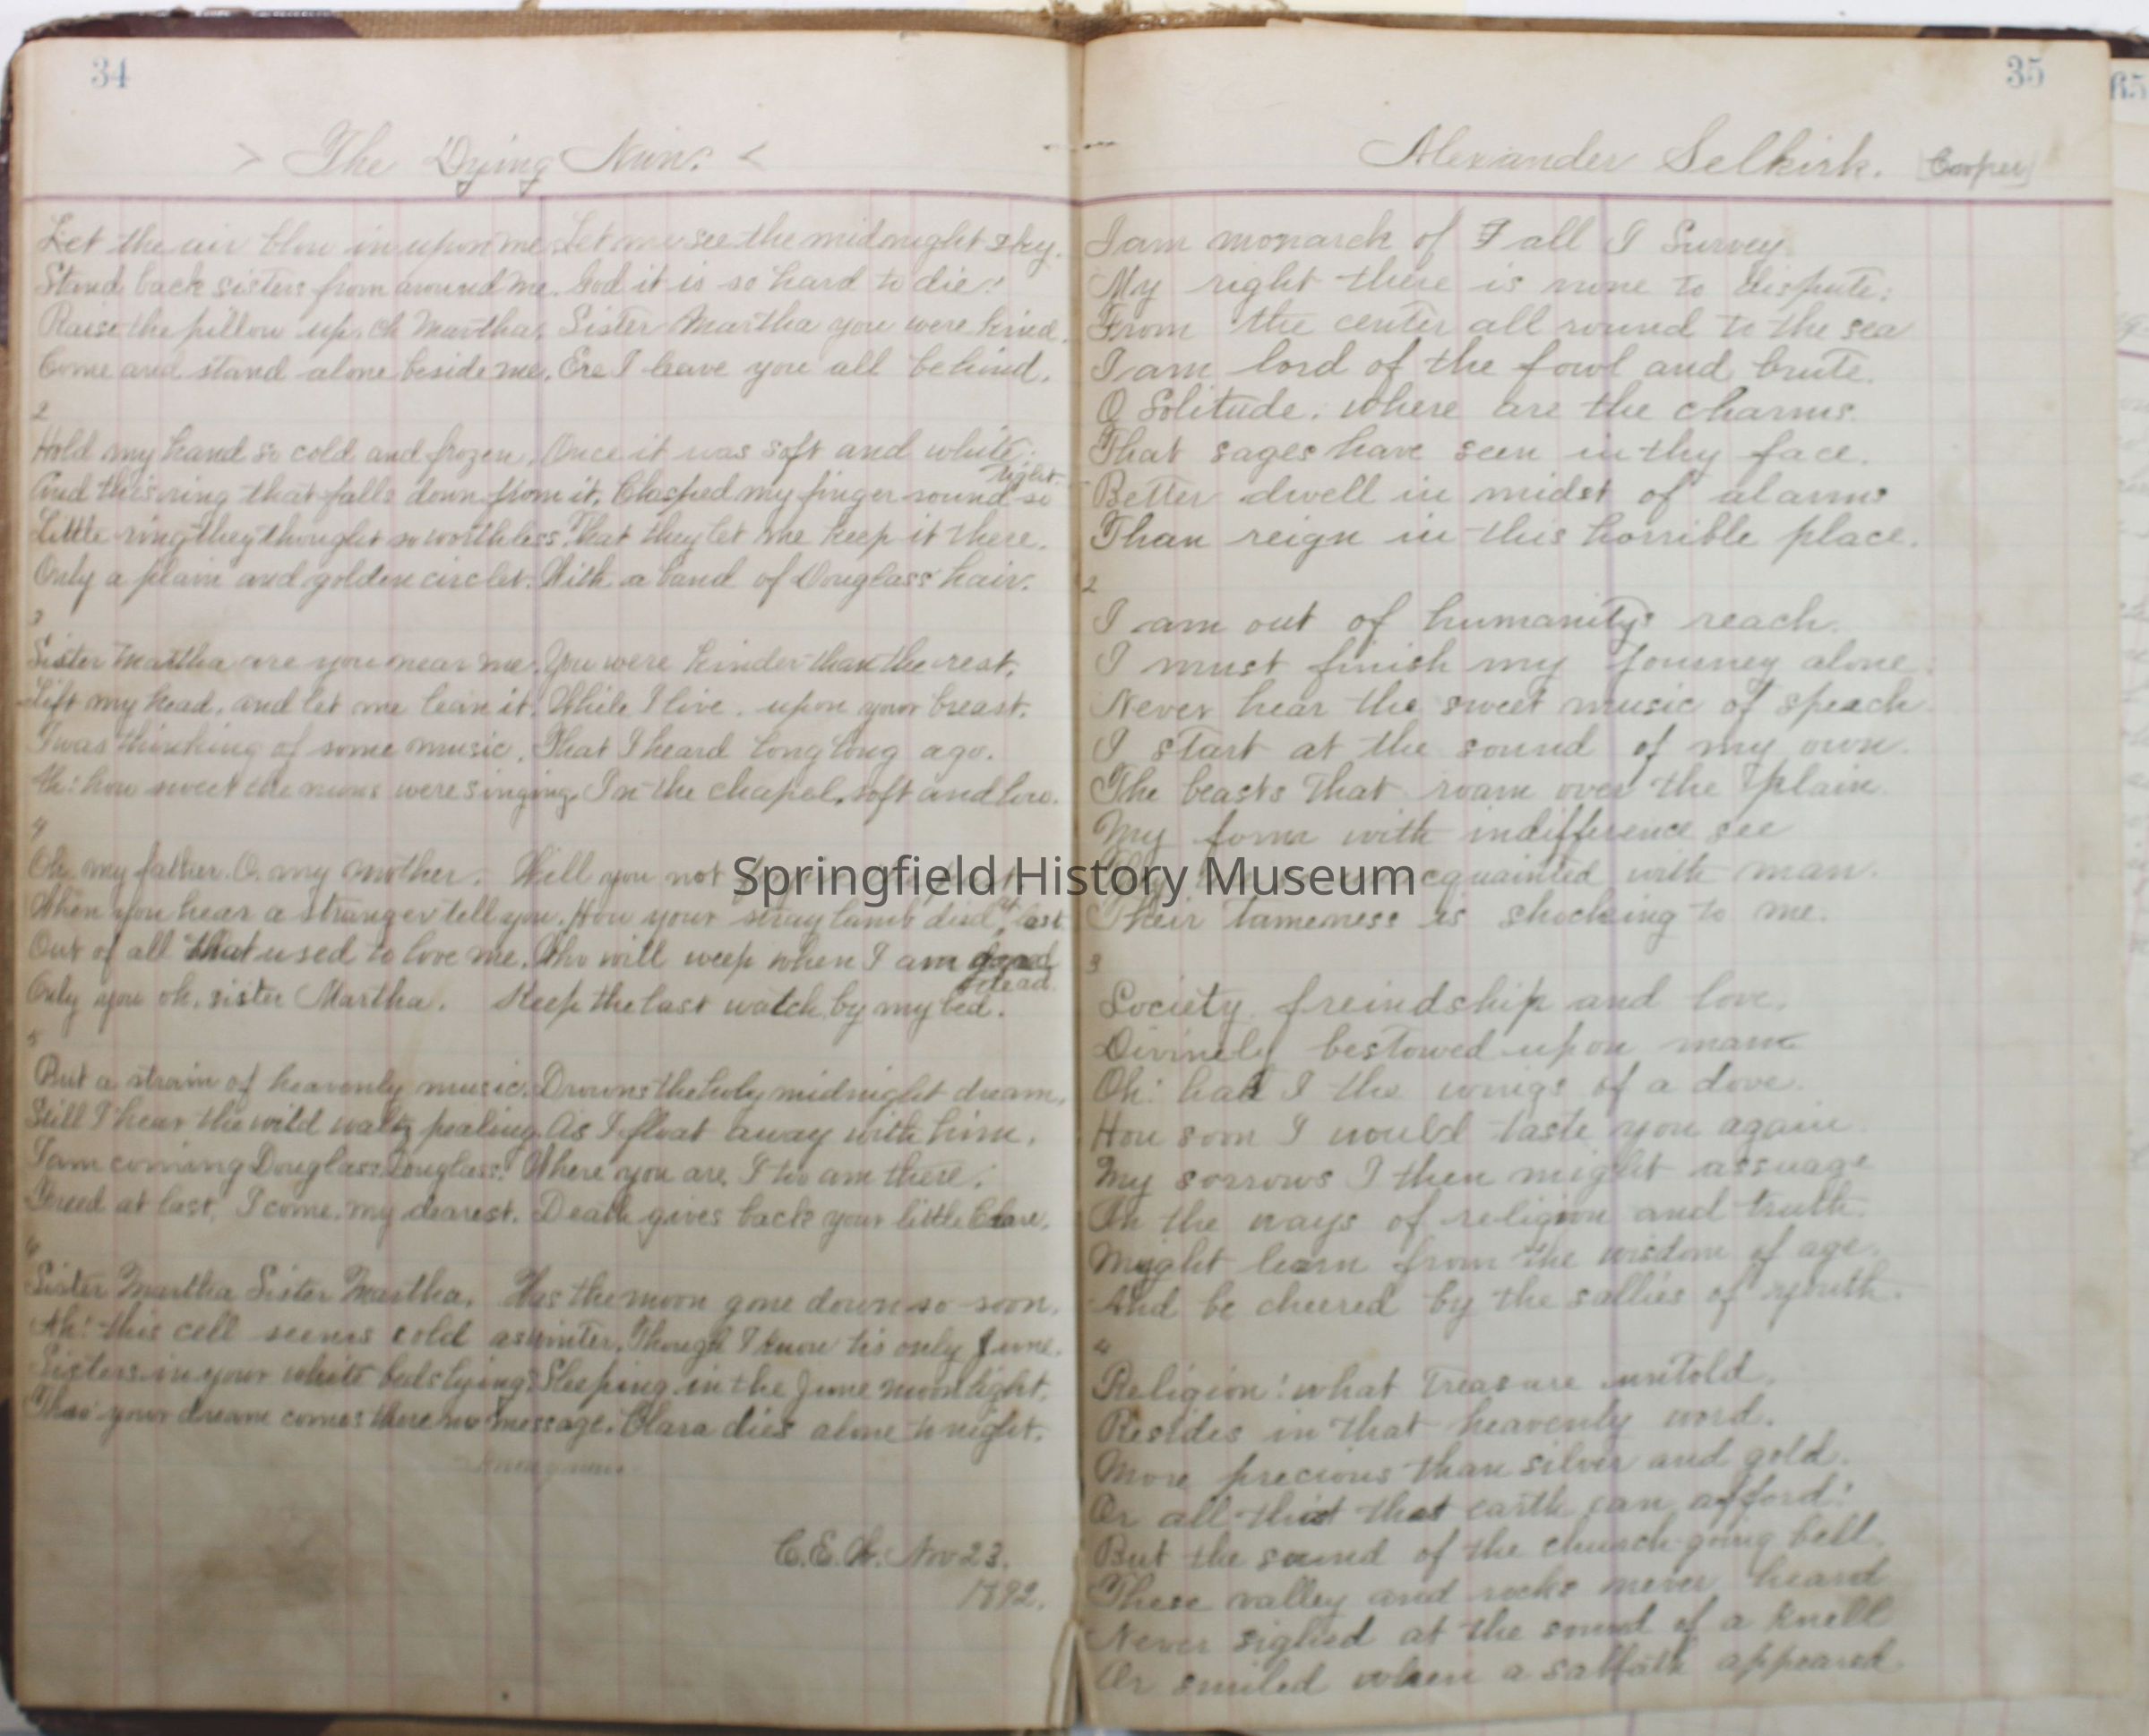 34
> The Dying Nun. <
Let the air blow in upon me. Let me see the midnight sky.
Stand back sisters from around me. God it is so hard to die!
Raise the pillow up, oh Martha, Sister Martha you were kind.
Come and stand alone beside me, Ere I leave you all behind.
2
Hold my hand so cold and frozen, Once it was soft and white;
tight
And this ring that falls down from it, Clasped my finger round so
Little ring they thought so worthless That they let me keep it there.
Only a plain and golden circlet. With a band of Douglass hair.
3
Sister Martha are you near me. You were kinder than the rest.
Lift my head, and let me lean it, While I live, upon your breast.
I was thinking of some music, That I heard long long ago.
Ah! how sweet the nuns were singing, In the chapel, soft and low.
4
Oh, my father. O. my mother. Will you not
When you hear a stranger tell you. How your stray lamb died at last
Out of all that used to love me. Who will weep when I am
dead.
Only you oh, sister Martha. Keep the last watch by my bed.
5
But a strain of heavenly music. Drowns the holy midnight dream,
Still I hear the wild waltz pealing. As I float away with him.
I am coming Douglass Douglass! Where you are, I too am there;
Freed at last, I come, my dearest. Death gives back your little Clare.
6
Sister Martha Sister Martha, Has the moon gone down so soon,
Ah! this cell seems cold as winter, Though I know tis only June.
Sisters in your white beds lying; Sleeping in the June moonlight,
Thro' your dream comes there no message. Clara dies alone tonight.
C.E.W. Nov 23.
1892.
35
Alexander Selkirk. [Cowper]
I am monarch of I all I Survey
My right there is none to dispute;
From the center all round to the sea
I am lord of the fowl and brute.
O Solitude. where are the charms.
That sages have seen in thy face.
Better dwell in midst of alarms
Than reign in this horrible place.
2
I am out of humanitys reach.
I must finish my Journey alone
Never hear the sweet music of speach
I start at the sound of my own.
The beasts that roam over the plain
My form with indifference see
acquainted with man.
Their tameness is shocking to me.
3
Society freindship and love.
Divinely bestowed upon man
Oh! had I the wings of a dove.
How soon I would taste you again
My sorrows I then might assuage
In the ways of religion and truth.
Might learn from the wisdom of age.
And be cheered by the sallies of youth.
4
Religion! what treasure untold,
Resides in that heavenly word.
More precious than silver and gold.
Or all that that earth can afford!
But the sound of the church-going bell.
These valley and rocks never heard
Never sighed at the sound of a knell
Or smiled when a sabbath appeared
65
Springfield History Museum